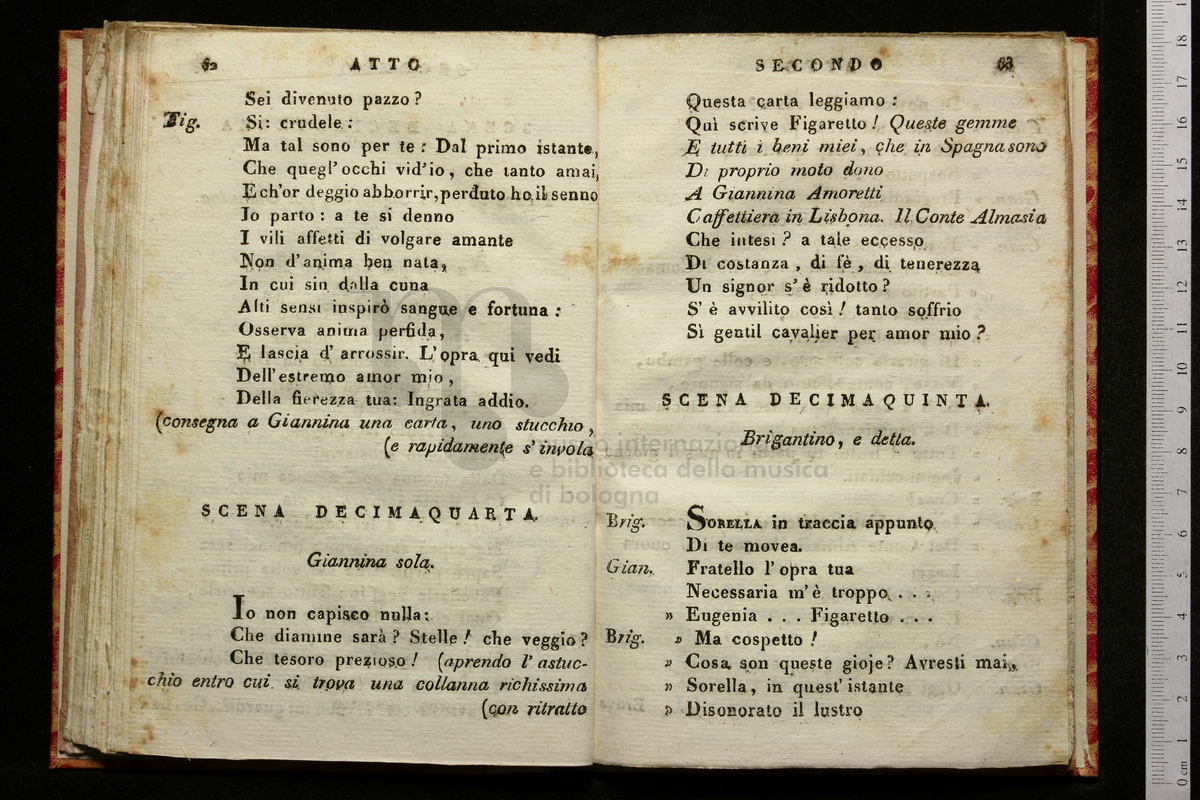 62 ATTO
Sei divenuto pazzo?
Fig. Si: crudele:
Ma tal sono per te: Dal primo istante,
Che quegl' occhi vid'io, che tanto amai,
E ch'or deggio abborrir, perduto ho il senno
Io parto: a te si denno
I vili affetti di volgare amante
Non d'anima ben nata,
In cui sin dalla cuna
Alti sensi inspirò sangue e fortuna:
Osserva anima perfida,
E lascia d' arrossir. L'opra qui vedi
Dell'estremo amor mio,
Della fierezza tua: Ingrata addio.
(consegna a Giannina una carta, uno stucchio,
(e rapidamente s'invola
SCENA DECIMAQUARTA.
Giannina sola.
Io non capisco nulla:
Che diamine sarà? Stelle! che veggio?
Che tesoro prezioso! (aprendo l'astuc-
chio entro cui si trova una collanna richissima
(con ritratto
SECONDO 63
Questa carta leggiamo:
Quì scrive Figaretto! Queste gemme
E tutti i beni miei, che in Spagna sono
Di proprio moto dono
A Giannina Amoretti
Caffettiera in Lisbona. Il Conte Almasia
Che intesi? a tale eccesso
Di costanza, di fè, di tenerezza
Un signor s'è ridotto?
S' è avvilito così! tanto soffrio
Sì gentil cavalier per amor mio?
SCENA DECIMAQUINTA.
Brigantino, e detta.
Brig. SORELLA in traccia appunto
Di te movea.
Gian. Fratello l'opra tua
Necessaria m'è troppo . . .
» Eugenia . . . Figaretto . . .
Brig. » Ma cospetto!
» Cosa son queste gioje? Avresti mai,
» Sorella, in quest' istante
» Disonorato il lustro
museo internazionale
e biblioteca della musica
di bologna
0 cm 1 2 3 4 5 6 7 8 9 10 11 12 13 14 15 16 17 18